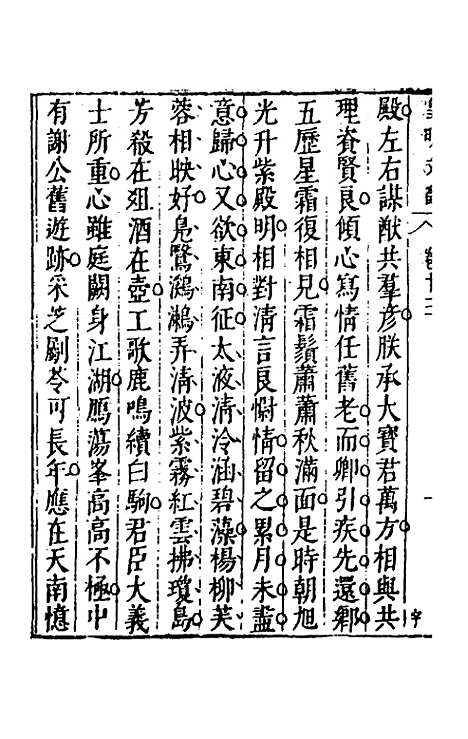 殿左右謀猷共羣彦朕承大寶君萬方相與共
理資賢良傾心寫情任舊老而卿引疾先還鄉
五歷星霜復相見霜鬚蕭蕭秋滿面是時朝旭
光升紫殿明相對淸言良慰情留之累月未盡
意歸心又欲東南征太液淸泠涵碧藻楊柳芙
蓉相映好鳬鷖鸂鶒弄淸波紫霧紅雲拂瓊島
芳殺在俎酒在壺工歌鹿鳴續白駒君臣大義
士所重心雖庭闕身江湖鴈蕩峯高高不極中
有謝公舊遊跡采芝劚苓可長年應在天南憶